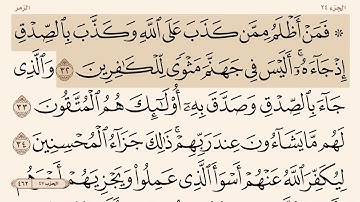 الجزء ٢٤ الزمر
۞ فَمَنْ أَظْلَمُ مِمَّن كَذَبَ عَلَى ٱللَّهِ وَكَذَّبَ بِٱلصِّدْقِ
إِذْ جَآءَهُۥٓ ۚ أَلَيْسَ فِى جَهَنَّمَ مَثْوًى لِّلْكَٰفِرِينَ ٣٢ وَٱلَّذِى
جَآءَ بِٱلصِّدْقِ وَصَدَّقَ بِهِۦٓ ۙ أُو۟لَٰٓئِكَ هُمُ ٱلْمُتَّقُونَ ٣٣
لَهُم مَّا يَشَآءُونَ عِندَ رَبِّهِمْ ۚ ذَٰلِكَ جَزَآءُ ٱلْمُحْسِنِينَ ٣٤
لِيُكَفِّرَ ٱللَّهُ عَنْهُمْ أَسْوَأَ ٱلَّذِى عَمِلُوا۟ وَيَجْزِيَهُمْ أَجْرَهُم
الحزب ٤٧ ٤٦٢